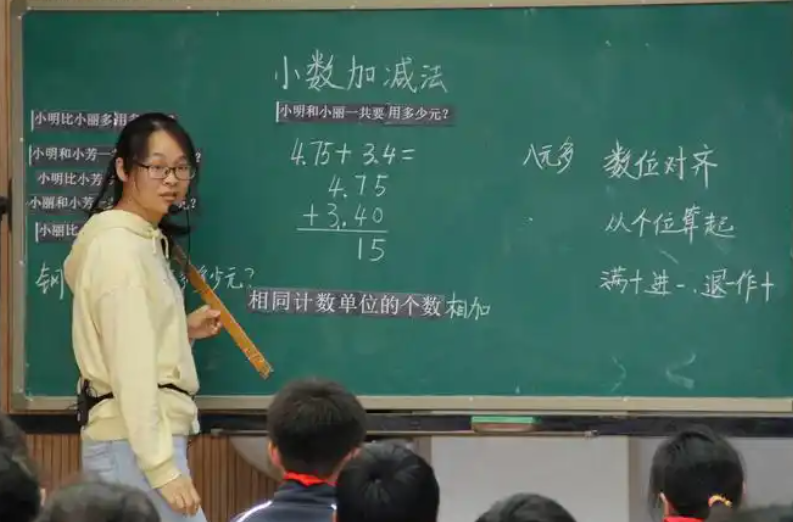 小数加减法
小明比小丽多用
小明和小丽一共要用多少元？
小明和小芳一
小明比小芳
小丽和小芳
小丽比
多少元？
4.75+3.4=
4.75
+3.40
15
相同计数单位的个数相加
八元多
数位对齐
从个位算起
满十进一.退一作十